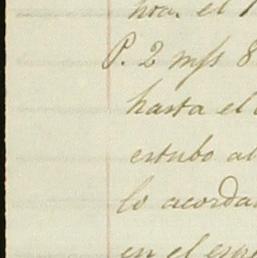 hoa. el 1
P. 2 mss 8
hasta el
estubo al
lo acorda
en el espe